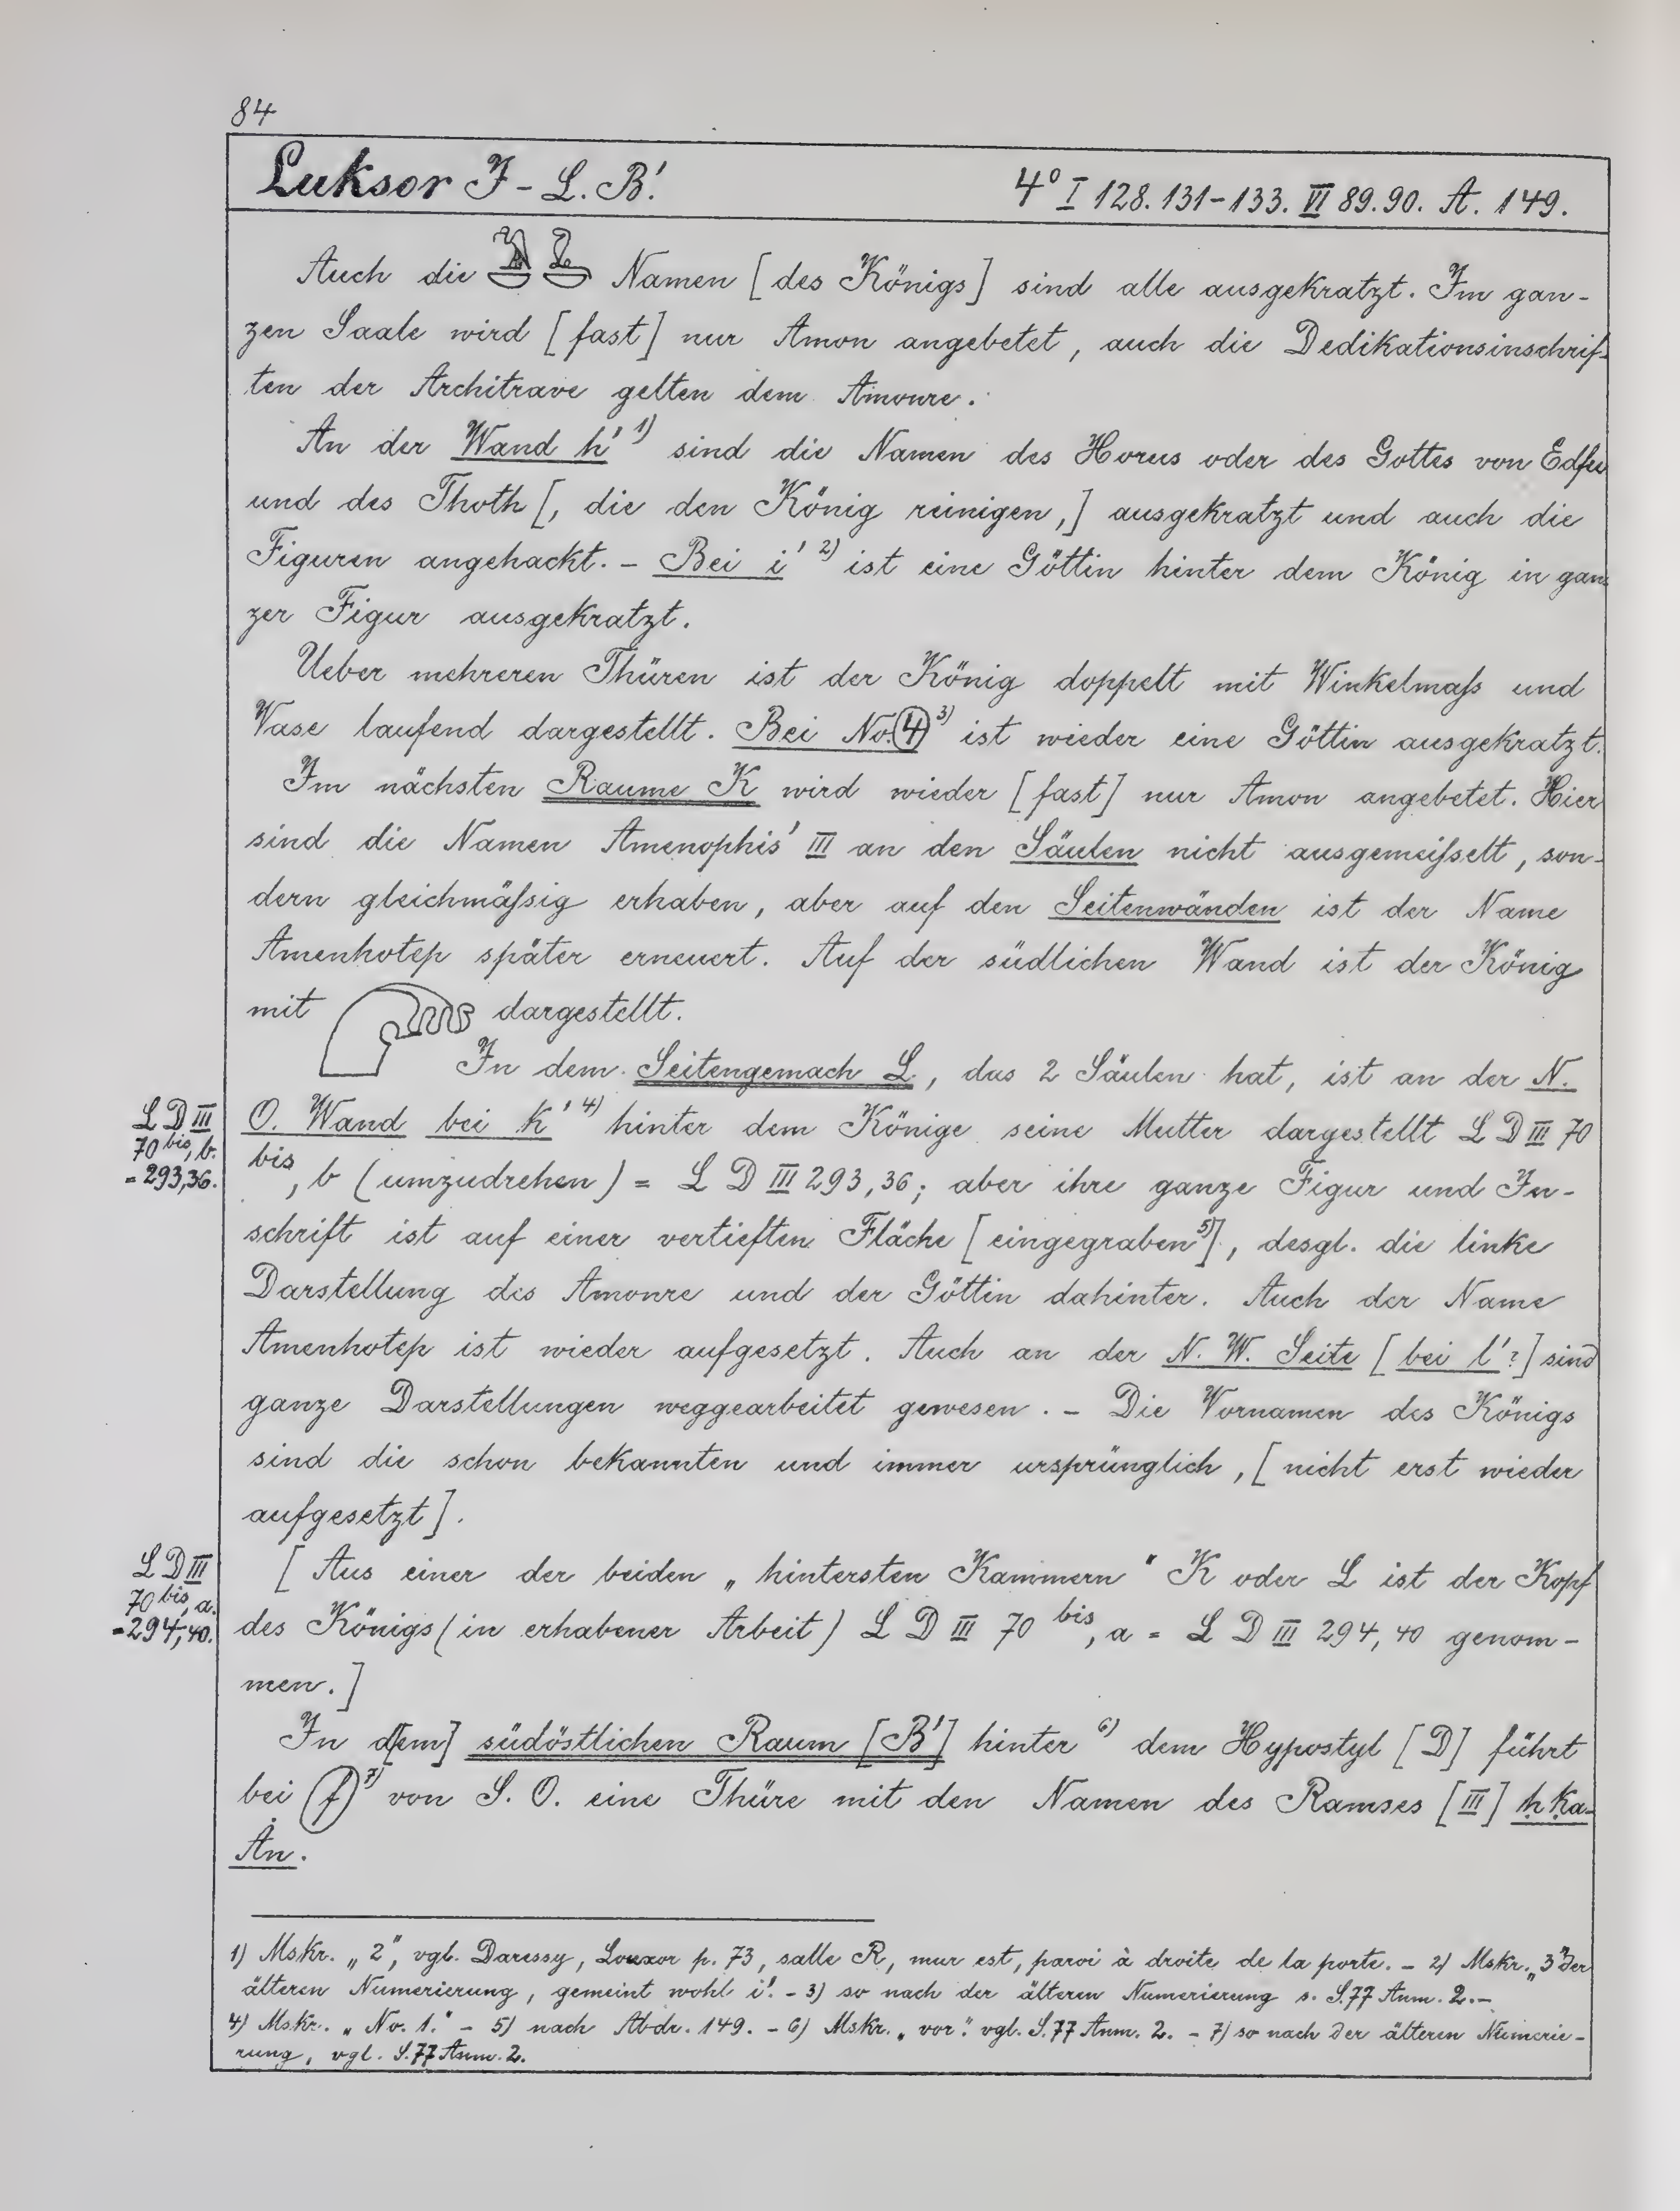 84
Luksor J - L. B'. 4° I 128. 131-133. VI 89.90. A. 149.
Auch die Namen [des Königs] sind alle ausgekratzt. Im gan-
zen Saale wird [fast] nur Amon angebetet, auch die Dedikationsinschrif-
ten der Architrave gelten dem Amonre.
An der Wand h' 1) sind die Namen des Horus oder des Gottes von Edfu
und des Thoth [, die den König reinigen,] ausgekratzt und auch die
Figuren angehackt. - Bei i' 2) ist eine Göttin hinter dem König in gan-
zer Figur ausgekratzt.
Ueber mehreren Thüren ist der König doppelt mit Winkelmaß und
Vase laufend dargestellt. Bei No. 4 3) ist wieder eine Göttin ausgekratzt.
Im nächsten Raume K wird wieder [fast] nur Amon angebetet. Hier
sind die Namen Amenophis' III an den Säulen nicht ausgemeißelt, son-
dern gleichmäßig erhaben, aber auf den Seitenwänden ist der Name
Amenhotep später erneuert. Auf der südlichen Wand ist der König
mit dargestellt.
In dem Seitengemach L, das 2 Säulen hat, ist an der N.
L D III
70 bis, b.
= 293,36.
O. Wand bei k' 4) hinter dem Könige seine Mutter dargestellt L D III 70
bis, b (umzudrehen) = L D III 293,36; aber ihre ganze Figur und In-
schrift ist auf einer vertieften Fläche [eingegraben 5)], desgl. die linke
Darstellung des Amonre und der Göttin dahinter. Auch der Name
Amenhotep ist wieder aufgesetzt. Auch an der N. W. Seite [bei l'?] sind
ganze Darstellungen weggearbeitet gewesen. - Die Vornamen des Königs
sind die schon bekannten und immer ursprünglich, [nicht erst wieder
aufgesetzt].
L D III
70 bis, a.
= 294,40.
[Aus einer der beiden „hintersten Kammern" K oder L ist der Kopf
des Königs (in erhabener Arbeit) L D III 70 bis, a = L D III 294,40 genom-
men.]
In d[em] südöstlichen Raum [B'] hinter 6) dem Hypostyl [D] führt
bei f 7) von S. O. eine Thüre mit den Namen des Ramses [III] ḥḳa-
Ȧn.
1) Mskr. „2", vgl. Daressy, Louxor p. 73, salle R, mur est, paroi à droite de la porte. - 2) Mskr. „3" der
älteren Numerierung, gemeint wohl i'. - 3) so nach der älteren Numerierung s. S. 77 Anm. 2. -
4) Mskr. „No. 1." - 5) nach Abdr. 149. - 6) Mskr. „vor." vgl. S. 77 Anm. 2. - 7) so nach der älteren Numerie-
rung, vgl. S. 77 Anm. 2.